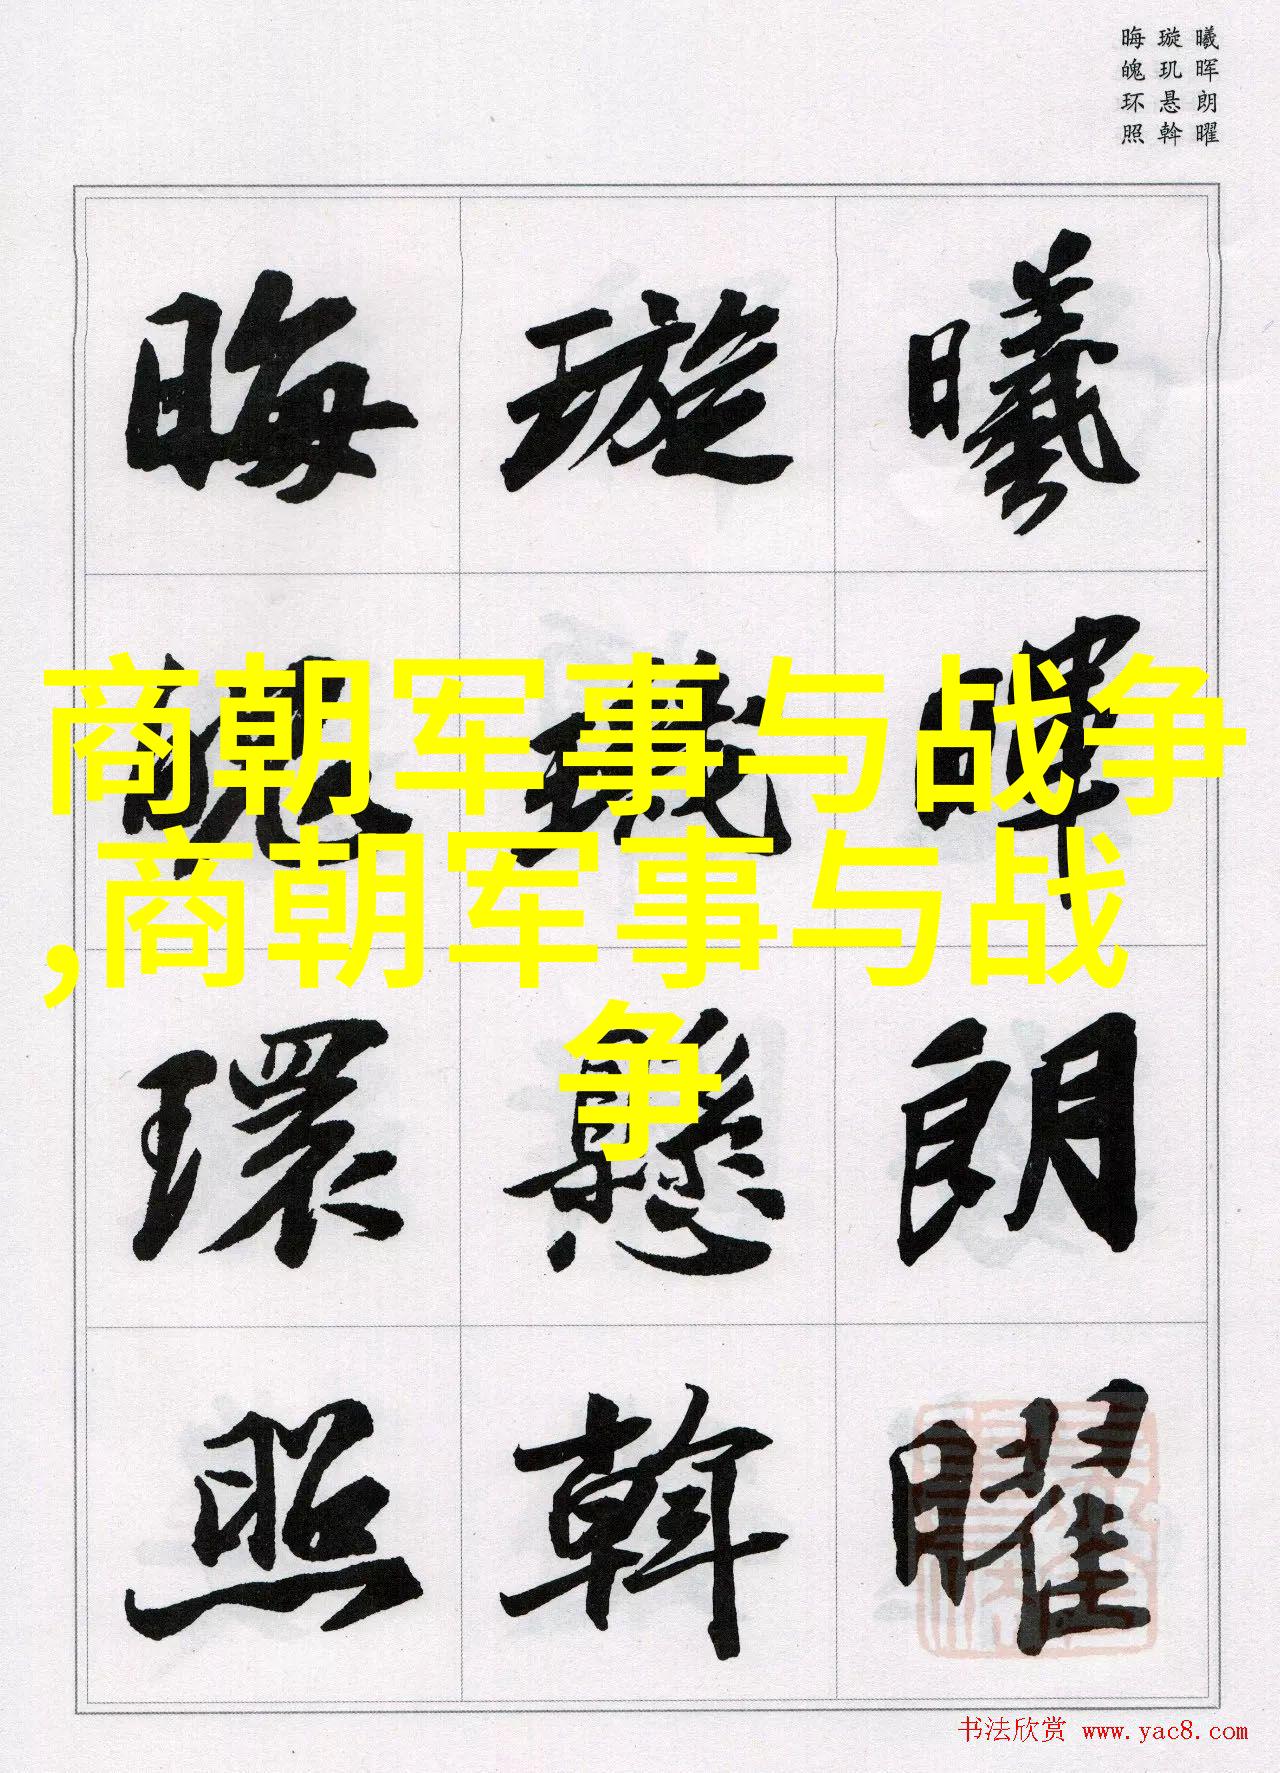 曦晖朗曜
璇玑悬斡
晦魄环照
曦暉朗曜
璇璣懸斡
晦魄環照
商朝军事与战争
,商朝军事与战
争
书法欣赏 www.yac8.com